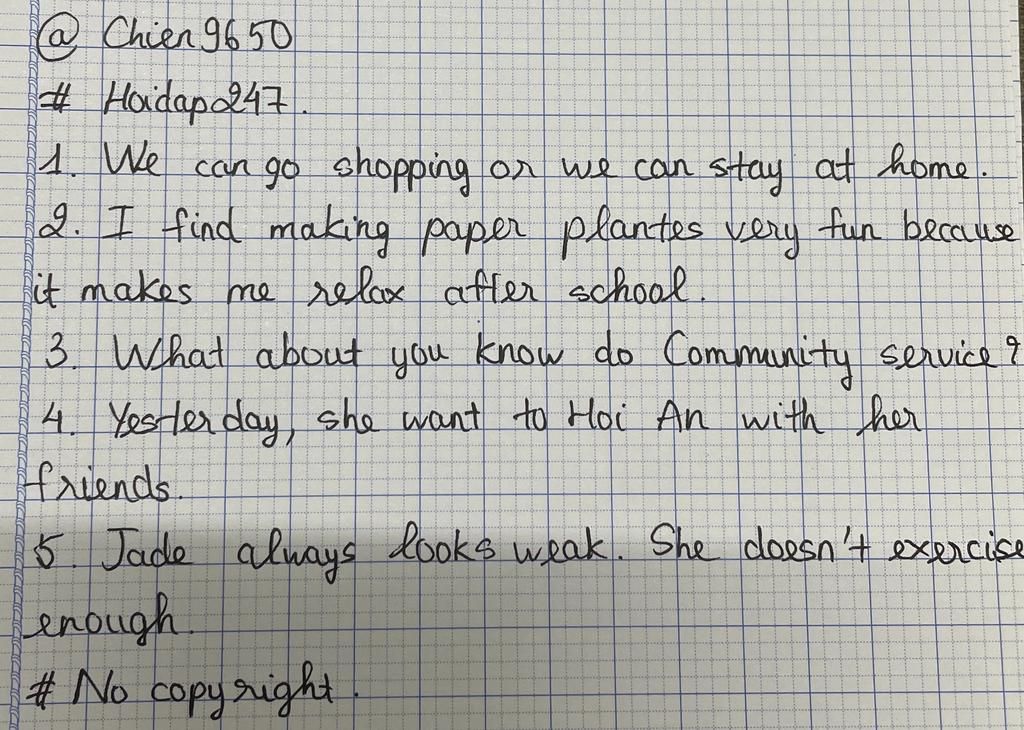 @ Chien9650
# Hoidap247.
1. We can go shopping or we can stay at home.
2. I find making paper plantes very fun because
it makes me relax after school.
3. What about you know do Community service?
4. Yesterday, she want to Hoi An with her
friends.
5. Jade always looks weak. She doesn't exercise
enough.
# No copyright.